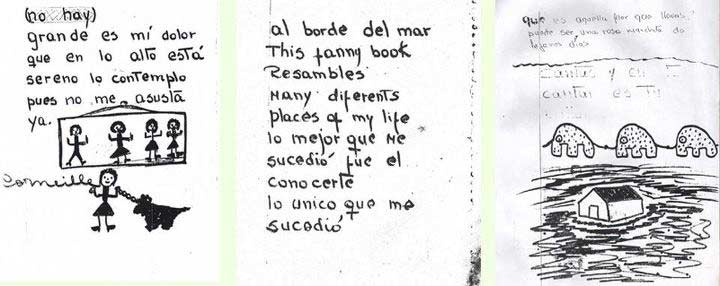 (no hay)
grande es mi dolor
que en lo alto está
sereno lo contemplo
pues no me asusta
ya.
Corneille
al borde del mar
This fanny book
Resambles
Many diferents
places of my life
lo mejor que me
sucedió fue el
conocerte
lo unico que me
sucedió
que es aquella flor que llevas
puede ser una rosa
lejanos días
cantas y en
cantar es Ty